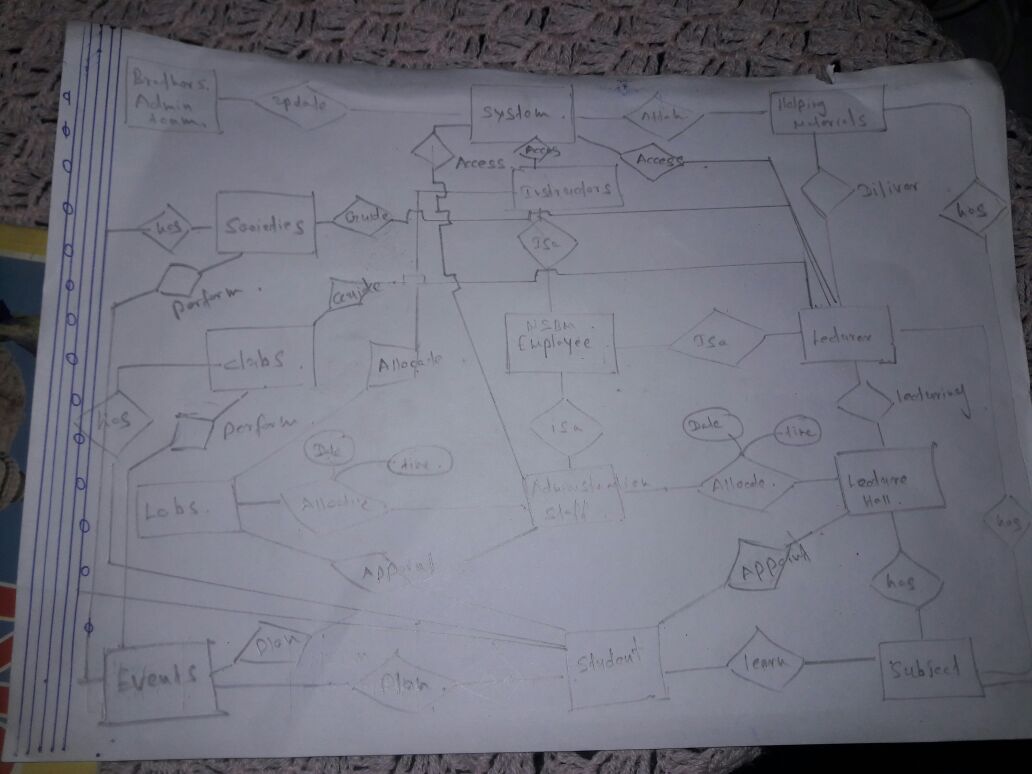 Brothers.
Admin
team.
update
System.
Attah
Helping
Materials
Access
Acces
Access
Instructors
Diliver
has
has
Societies
Guide
Isa
perform.
NSBM
Employee
Isa
Lecturer
Clubs.
Allocade
lecturing
has
perform
isa
Date
time.
Date
time
Labs.
Administration
Staff
Allocade.
Lecture
Hall.
has
Appoint
Appoint
has
Plan
Student
learn
Subject
Events
Plan